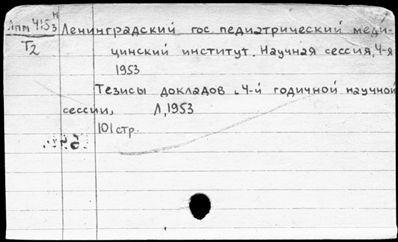 Ленинградский гос. педиатрический меди-
цинский институт. Научная сессия, 4-я
1953
Тезисы докладов 4-й годичной научной
сессии, Л, 1953
101 стр.